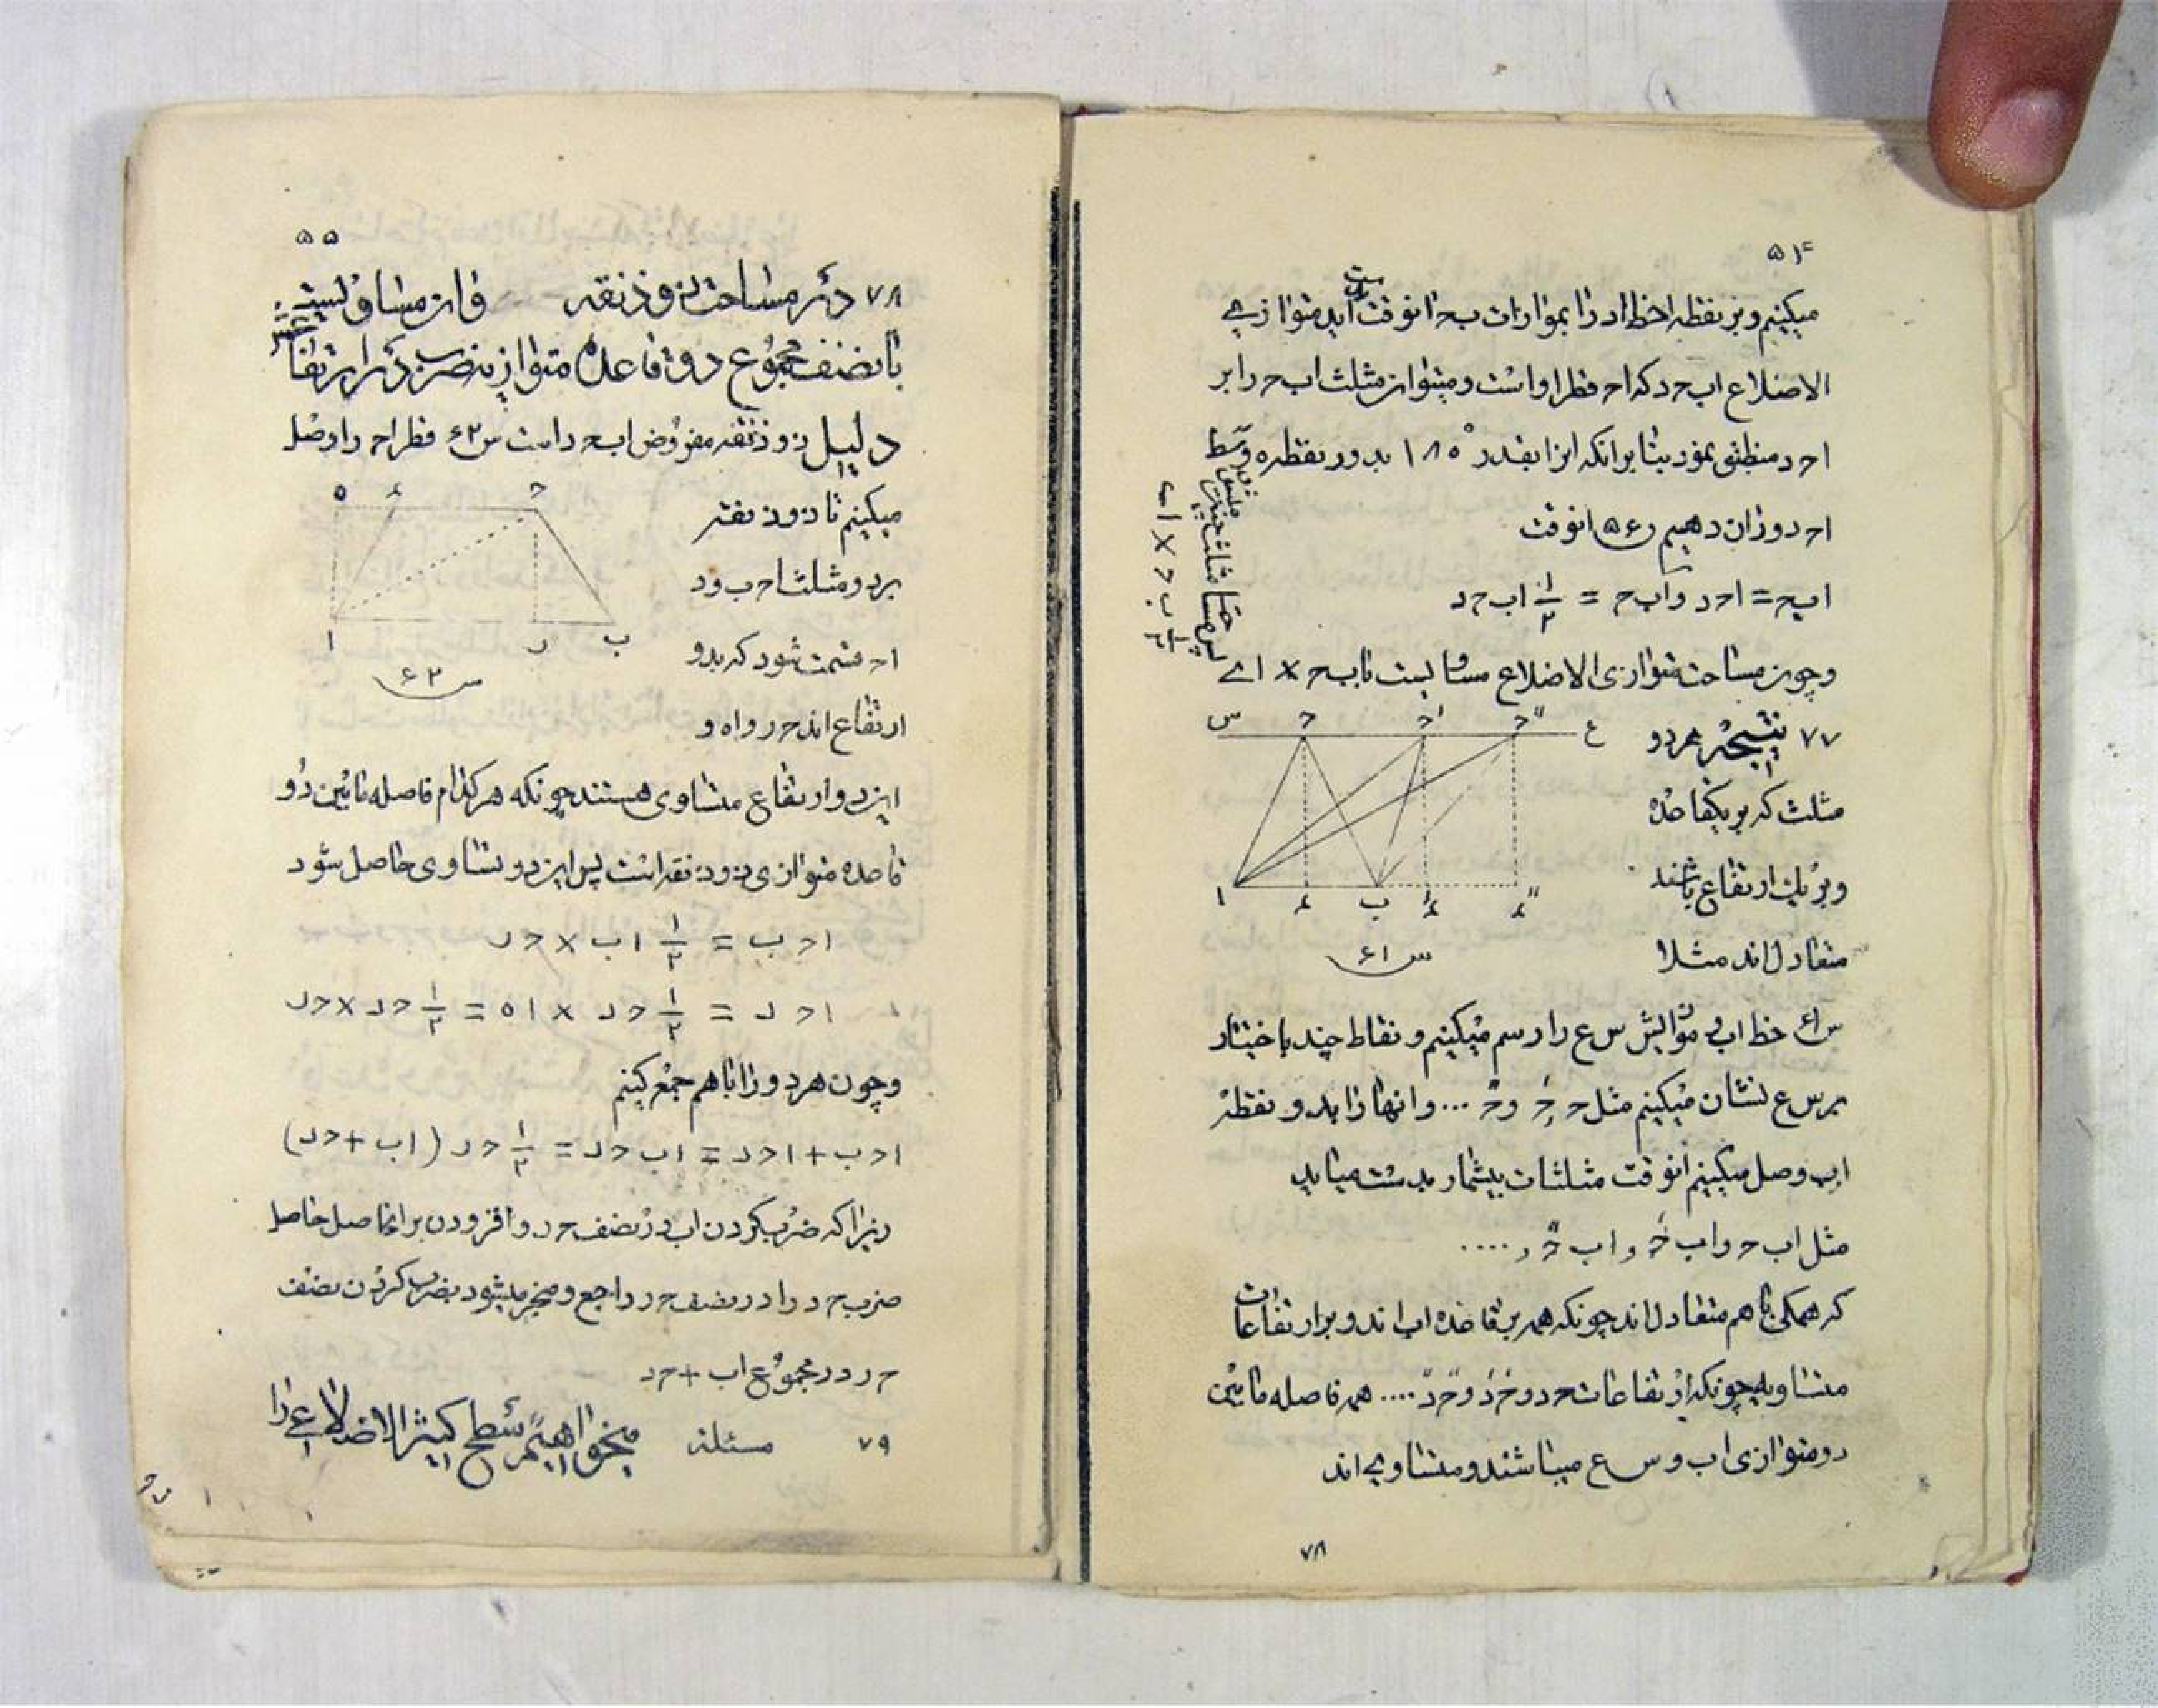 ۵۴
میکنیم و بر نقطه ا خط اد را بموازات ب ح انوقت بدست اید متوازی
الاضلاع اب ح د که اح قطر او است و میتوان مثلث اب ح را بر
اح د منطبق نمود بنابرانکه انرا بقدر ۱۸۰° بدور نقطه ه وسط
اح دوران دهیم س ۵۶ انوقت
اب ح = اح د و اب ح = ۱/۲ اب ح د
و چون مساحت متوازی الاضلاع مساویست با ب ح × ا ء
پس مساحت مثلث چنین میشود
۱/۲ ب ح × ا ء
۷۷ نتیجه هر دو
مثلث که بر یکقاعده
و بر یک ارتفاع باشند
متعادل اند مثلا
س ح حَ حً ع
ا ء ب ءَ ءً
س ۶۱
س ۶۱ خط اب و موازیش س ع را رسم میکنیم و نقاط چند باختیار
بر س ع نشان میکنیم مثل ح حَ و حً ... و انها را بدو نقطه
اب وصل میکنیم انوقت مثلثات بیشمار بدست میاید
مثل اب ح و اب حَ و اب حً و ....
که همکی با هم متعادل اند چونکه همه بر قاعده اب اند و بر ارتفاعات
متساویه چونکه ارتفاعات ح د و حَ دَ و حً دً .... همه فاصله مابین
دو متوازی اب و س ع میباشند و متساوی اند
۷۸
۵۵
۷۸ در مساحت ذوذنقه و ان مساویست
با نصف مجموع دو قاعده متوازیه ضرب در ارتفاعش
دلیل ذوذنقه مفروض اب ح د است س ۶۲ قطر اح را وصل
میکنیم تا ذوذنقه
بر دو مثلث اح ب و د
اح قسمت شود که بدو
ارتفاع اند ح ر و اه و
ه ء ح
ا ر ب
س ۶۲
این دو ارتفاع متساوی هستند چونکه هر کدام فاصله مابین دو
قاعده متوازی ذوذنقه است پس این دو تساوی حاصل شود
اح ب = ۱/۲ اب × ح ر
اح د = ۱/۲ ح د × اه = ۱/۲ ح د × ح ر
و چون هر دو را با هم جمع کنیم
اح ب + اح د = اب ح د = ۱/۲ ح ر (اب + ح د)
زیرا که ضرب کردن اب در نصف ح ر و افزودن بر انحاصل حاصل
ضرب ح د را در نصف ح ر راجع و منجر میشود بضرب کردن نصف
ح ر در مجموع اب + ح د
۷۹ مسئله میخواهیم سطح کثیر الاضلاعی را